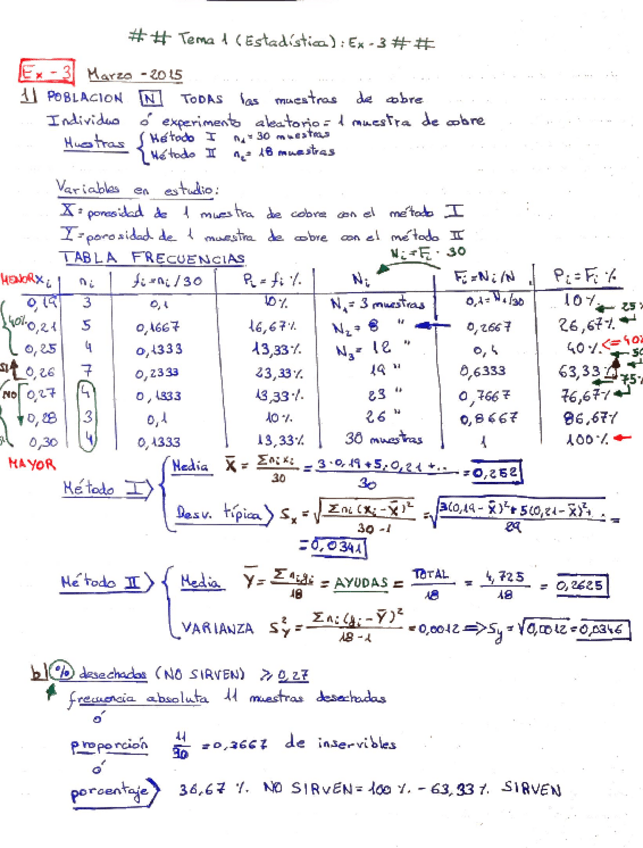 ## Tema 1 (Estadística): Ex-3 ##
Ex-3 Marzo-2015
1) POBLACION N TODAS las muestras de cobre
Individuo ó experimento aleatorio = 1 muestra de cobre
Muestras { Método I n₁=30 muestras
Método II n₂=18 muestras
Variables en estudio:
X=porosidad de 1 muestra de cobre con el método I
Y=porosidad de 1 muestra de cobre con el método II
Ni=Fi·30
TABLA FRECUENCIAS
MENOR xi | ni | fi=ni/30 | Pi=fi % | Ni | Fi=Ni/N | Pi=Fi %
0,19 | 3 | 0,1 | 10% | N₁=3 muestras | 0,1=N₁/30 | 10% 25%
40% 0,21 | 5 | 0,1667 | 16,67% | N₂=8 " | 0,2667 | 26,67%
0,25 | 4 | 0,1333 | 13,33% | N₃=12 " | 0,4 | 40% <=40%
SI 0,26 | 7 | 0,2333 | 23,33% | 19 " | 0,6333 | 63,33%
NO 0,27 | 4 | 0,1333 | 13,33% | 23 " | 0,7667 | 76,67% 75%
0,28 | 3 | 0,1 | 10% | 26 " | 0,8667 | 86,67%
0,30 | 4 | 0,1333 | 13,33% | 30 muestras | 1 | 100%
MAYOR
Método I) { Media X̄ = Σnixi/30 = 3·0,19+5·0,21+.../30 = 0,252
Desv. típica) Sx = √(Σni(xi-X̄)²/30-1) = √(3(0,19-X̄)²+5(0,21-X̄)²+.../29) =
=0,0341
Método II) { Media Ȳ = Σniyi/18 = AYUDAS = TOTAL/18 = 4,725/18 = 0,2625
VARIANZA S²Y = Σni(yi-Ȳ)²/18-1 = 0,0012 => Sy = √0,0012 = 0,0346
b) % desechados (NO SIRVEN) ≥ 0,27
frecuencia absoluta 11 muestras desechadas
ó
proporción 11/30 = 0,3667 de inservibles
ó
porcentaje) 36,67 % NO SIRVEN = 100 % - 63,33 % SIRVEN